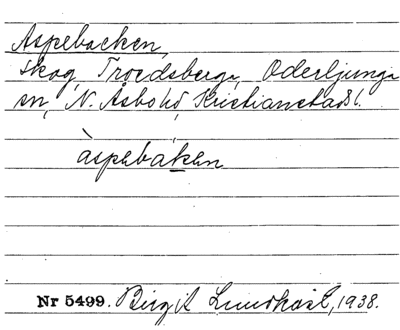 Aspebacken,
Skog, Troedsberga, Oderljunga
sn, N. Åsbo hd, Kristianstads l.
àspebáken
Nr 5499. Birgit Lundkvist, 1938.